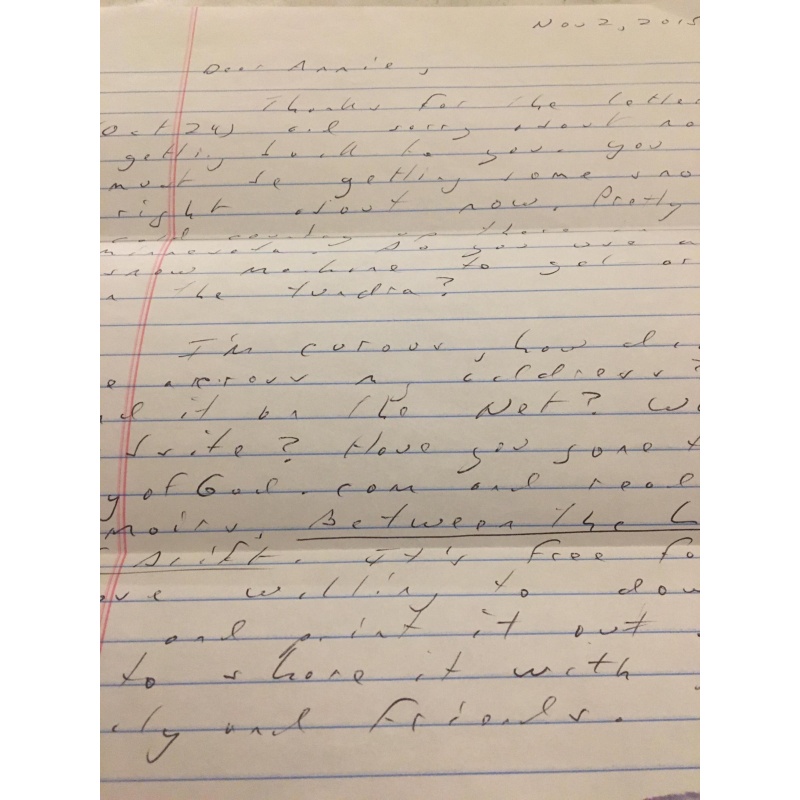 Nov 2, 2015
Dear Annie,
Thanks for the letter
(Oct 24) and sorry about no
getting back to you. You
must be getting some sno
right about now. Pretty
cold country up there in
Minnesota. Do you use a
snow machine to get or
n the tundra?
I'm curous, how di
e across my address?
d it on the Net? We
site? Have you gone t
y of God.com and read
moirs, Between the L
Drift. It's free fo
ve willing to dow
and print it out
to share it with
ily and friends.